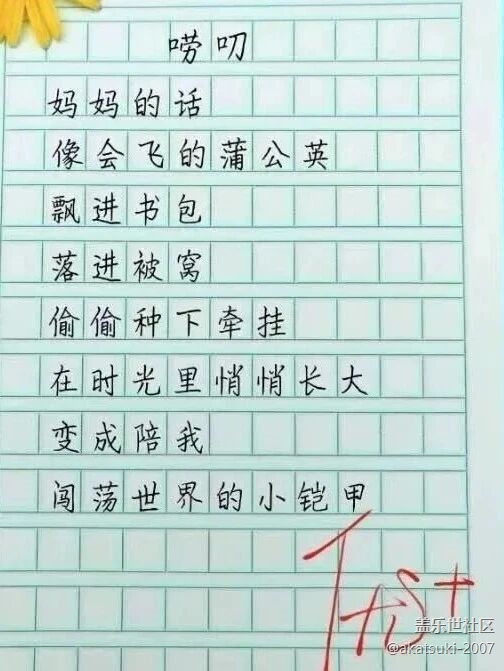 唠叨
妈妈的话
像会飞的蒲公英
飘进书包
落进被窝
偷偷种下牵挂
在时光里悄悄长大
变成陪我
闯荡世界的小铠甲
盖乐世社区
@akatsuki-2007